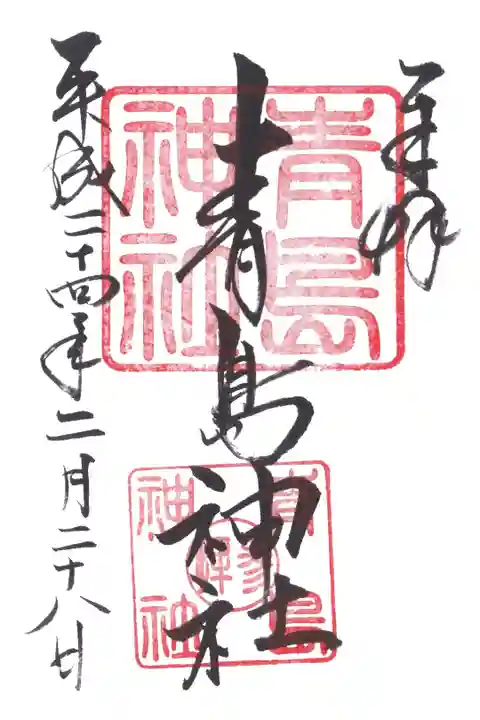 奉拝
青島神社
青島神社
青島神社
平成二十四年二月二十八日